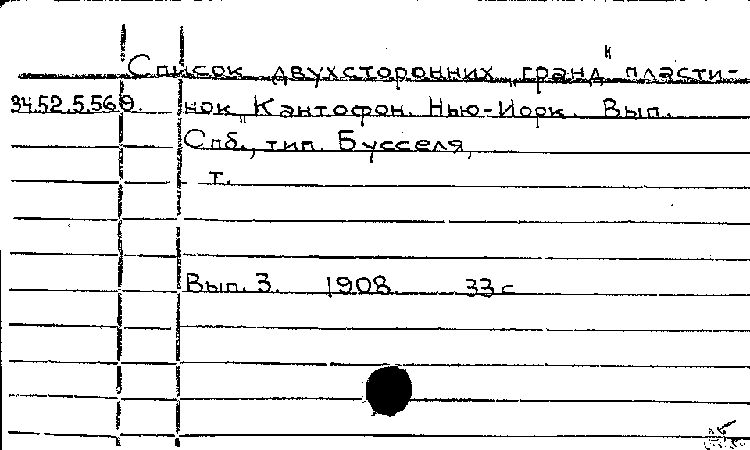 Список двухсторонних „гранд“ пласти-
34.52.5.560. нок „Кантофон. Нью-Йорк. Вып.
Спб., тип. Бусселя,
т.
Вып. 3. 1908. 33 с